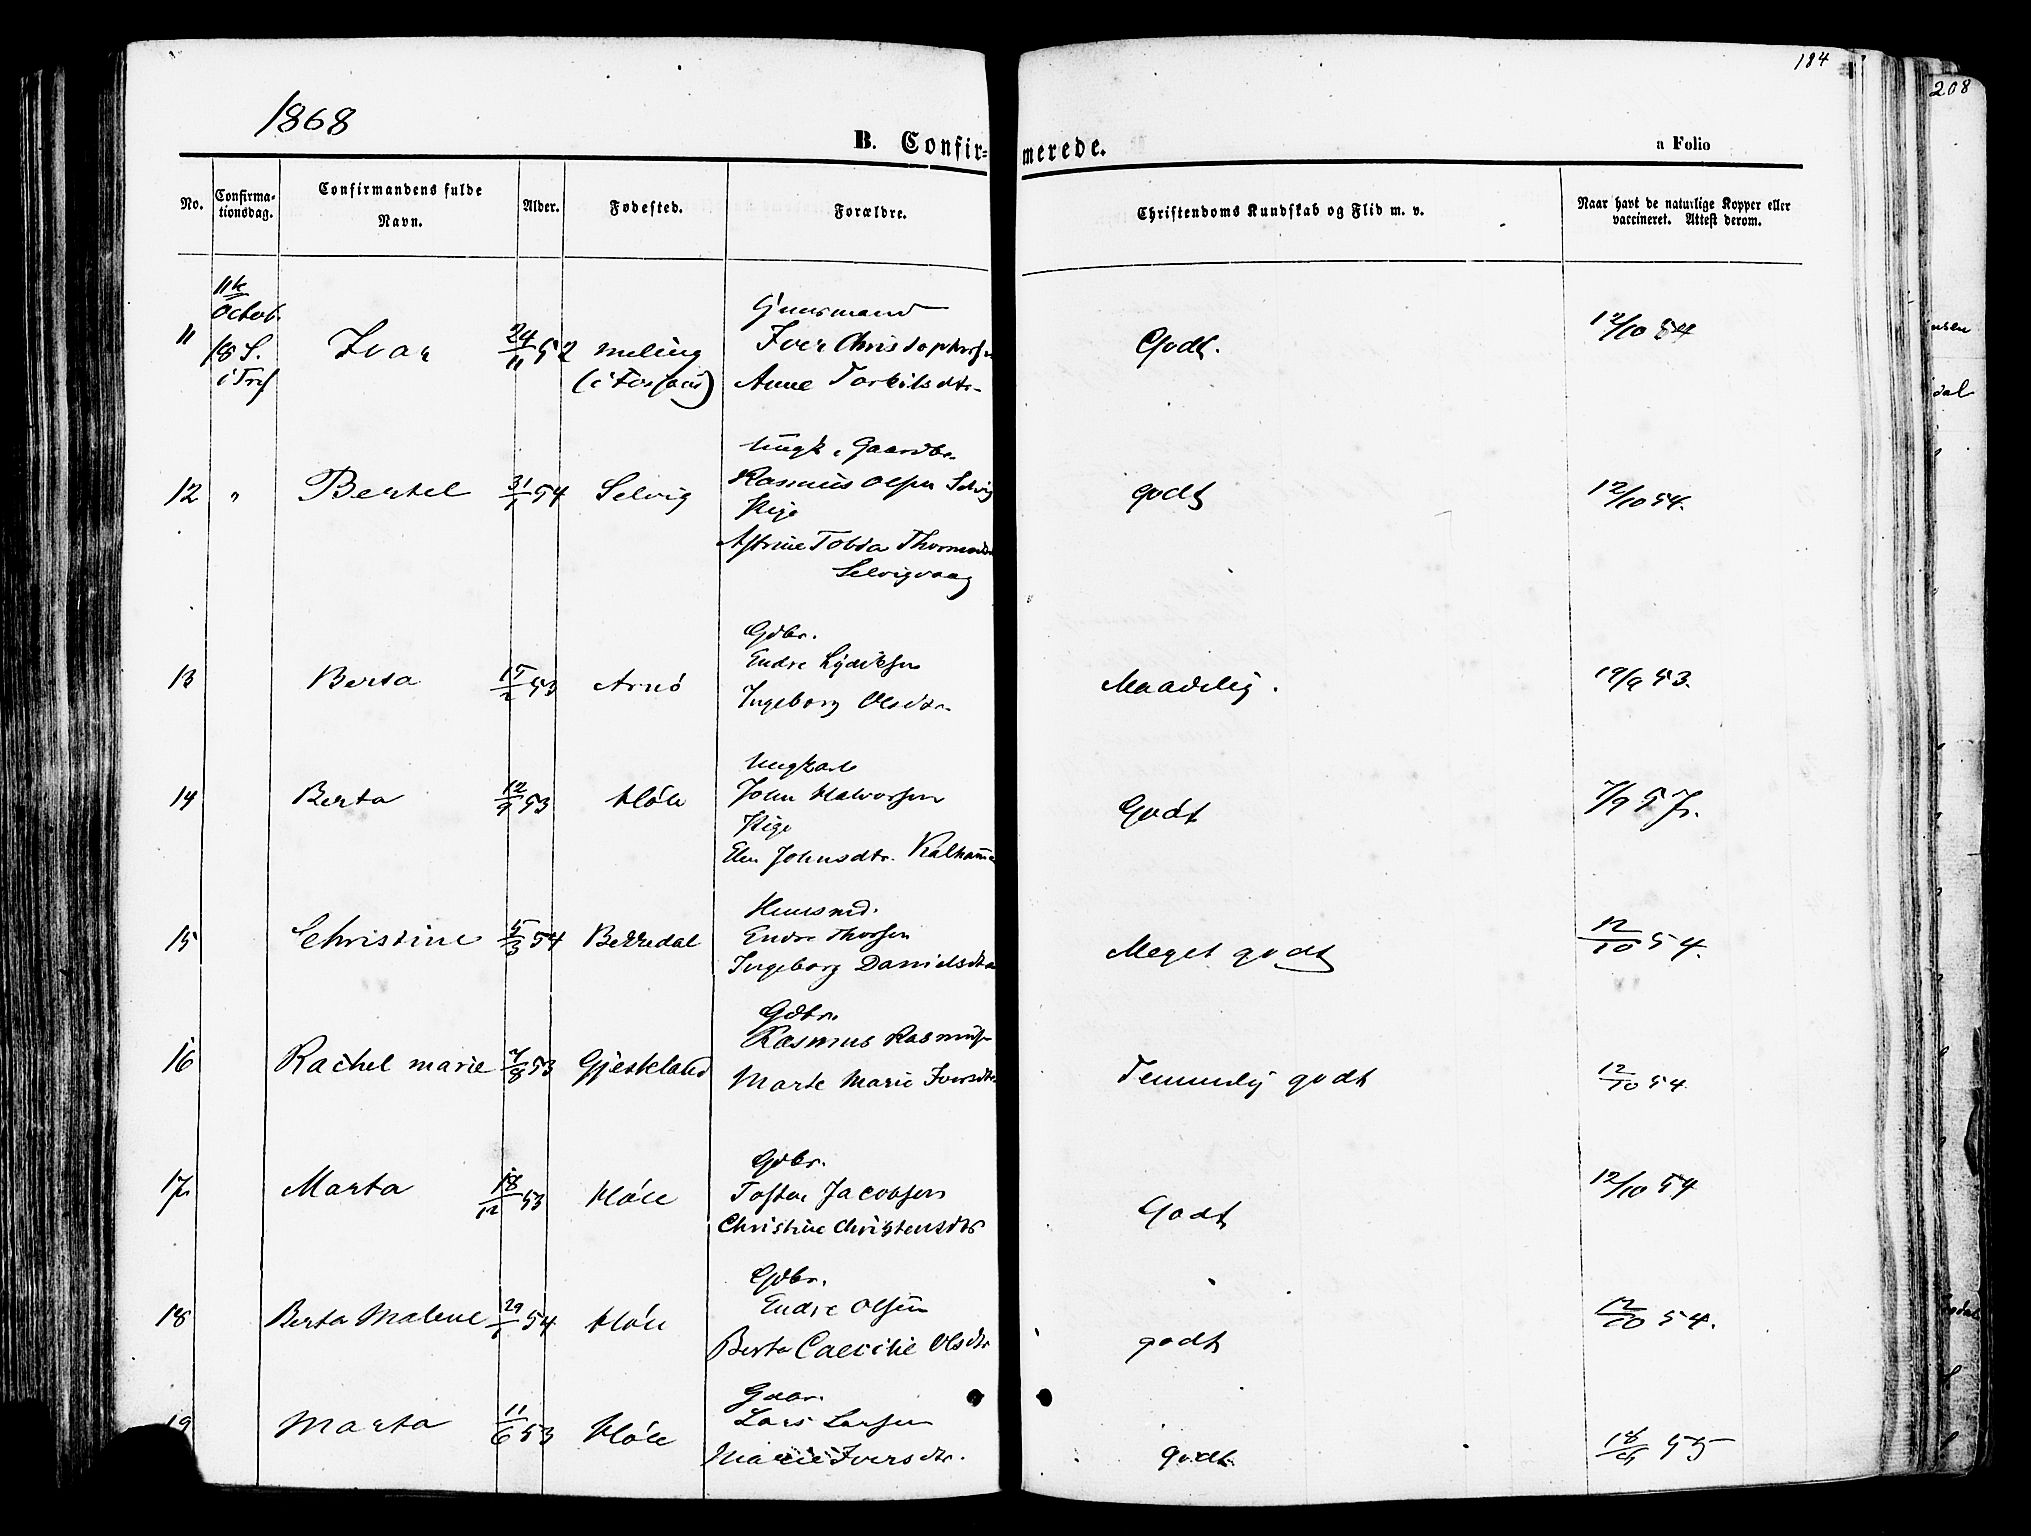 184
208
1868
B. Confir= merede.
a Folio
No. Confirma-tionsdag. Confirmandens fulde Navn. Alder. Fødested. Forældre. Christendoms Kundskab og Flid m. v. Naar havt de naturlige Kopper eller vaccineret. Attest derom.
11te
Octob.
Huusmand
11 18 S. Ivar 24/11 52 Meling Iver Christophersen Godt. 12/10 54
i Tref (i Forsand) Anne Torkilsdtr
Ungk. Gaardbr.
12 " Bertel 31/1 54 Selvig Rasmus Olsen Selvig godt 12/10 54.
Pige
Astrine Tobia
Selvigvaag
Gdbr.
Endre Lydiksen
13 Berta 15/2 53 Arnø Maadelig. 19/9 53.
Ingeborg Olsdtr.
Ungkarl
14 Berta 12/9 53 Høle John Halvorsen Godt 7/9 57.
Pige
Elen Johnsdtr.
Huusmd.
15 Christine 15/3 54 Bergedal Endre Thorsen Meget godt 12/10 54.
Ingeborg Danielsdtr
Gdbr.
Rasmus Rasmus
16 Rachel Marie 7/8 53 Gjeskeland Temmelig godt 12/10 54
Marte Marie Iversdtr
Gdbr.
17 Marta 18/12 53 Høle Tosten Jacobsen Godt 12/10 54
Christine Christensdtr
Gdbr.
18 Berta Malene 29/1 54 Høle Endre Olsen godt 12/10 54.
Berta Caecilie Olsdtr
Gdbr.
19 Marta 11/6 53 Høle Lars Larsen godt 55
Marie Iversdtr.